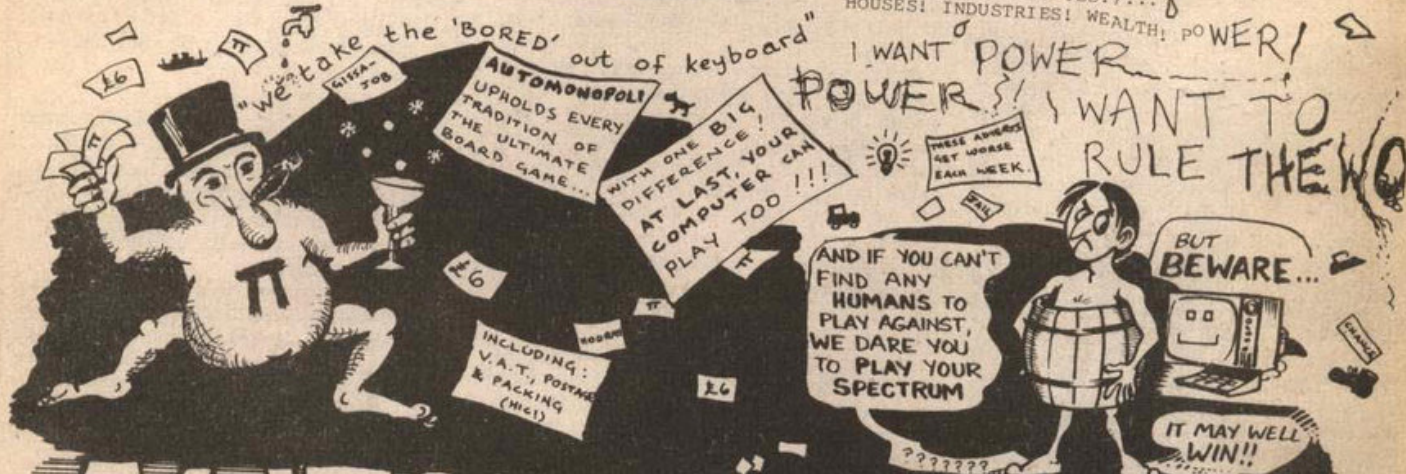 HOUSES! INDUSTRIES! WEALTH! POWER!
I WANT POWER
POWER!! I WANT TO
RULE THE WO
"we take the 'BORED' out of keyboard"
£6
π
GISSA-
JOB
π
AUTOMONOPOLI
UPHOLDS EVERY
TRADITION OF
THE ULTIMATE
BOARD GAME...
WITH ONE BIG
DIFFERENCE!
AT LAST, YOUR
COMPUTER CAN
PLAY TOO!!!
THESE ADVERTS
GET WORSE
EACH WEEK.
JAIL
π
£6
π
π
INCLUDING:
V.A.T, POSTAGE
& PACKING
(HIC!)
£6
AND IF YOU CAN'T
FIND ANY
HUMANS TO
PLAY AGAINST,
WE DARE YOU
TO PLAY YOUR
SPECTRUM
???????
BUT
BEWARE...
CHANCE
IT MAY WELL
WIN!!